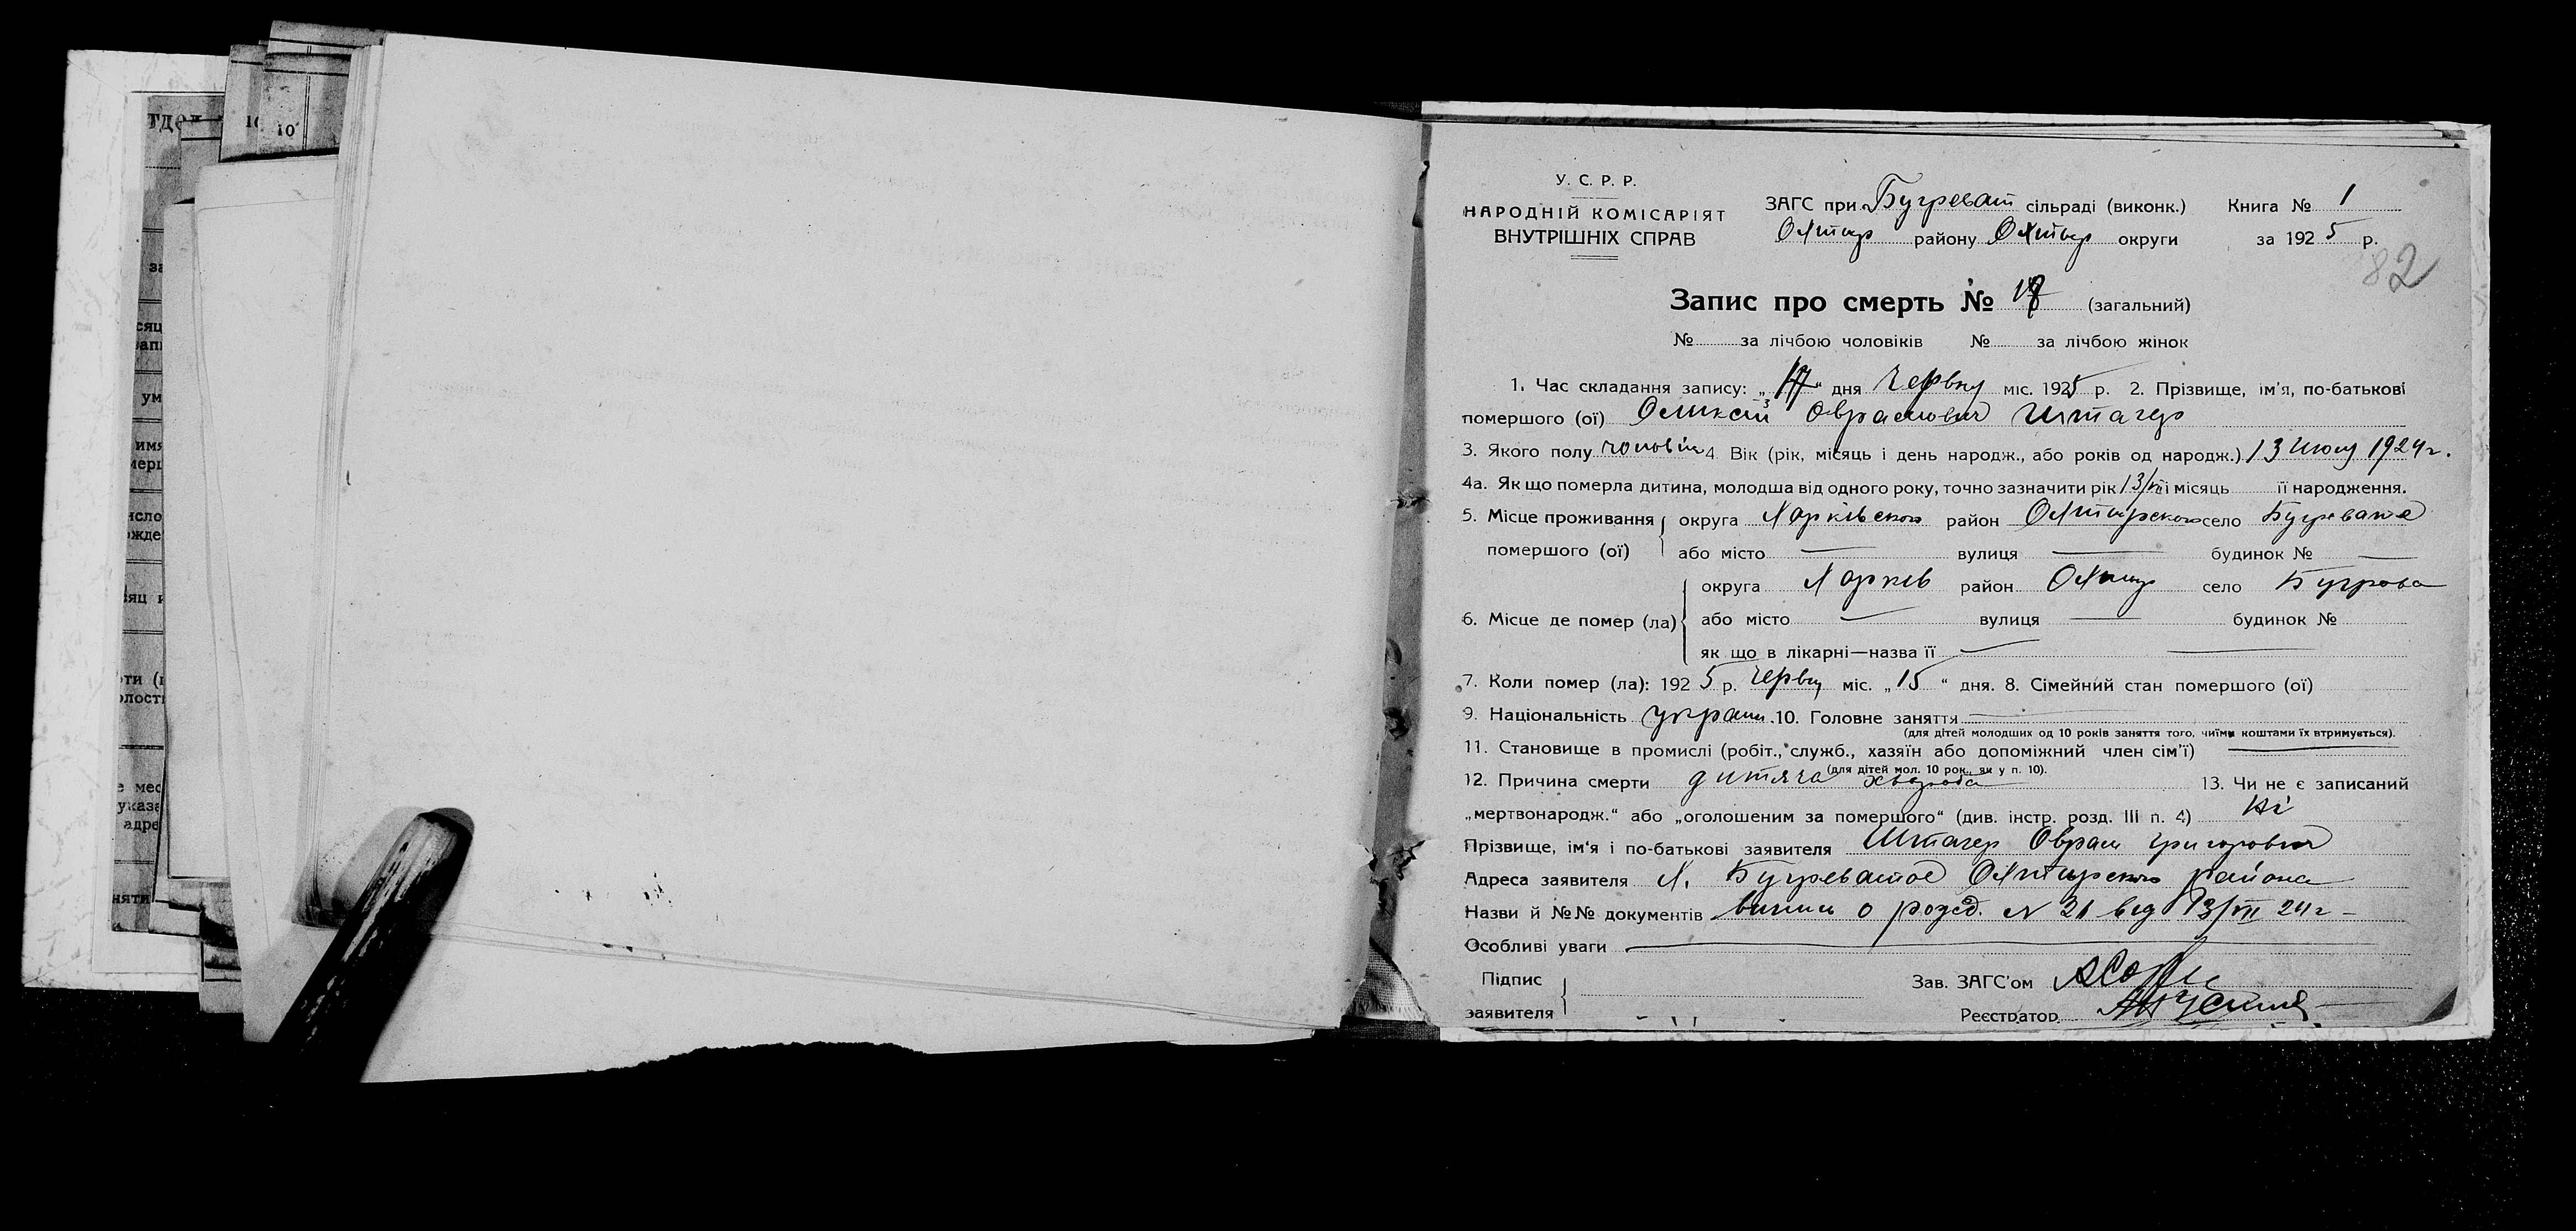 тдел
10
за
сяц
запи
ум
имя
мерш
исло
ожде
яц и
ти (
лост
е мес
указа
адре
няти
У. С. Р. Р.
НАРОДНІЙ КОМІСАРІЯТ
ВНУТРІШНІХ СПРАВ
ЗАГС при Бугреват сільраді (виконк.) Книга № 1
Охтир району Охтир округи за 1925 р.
82
Запис про смерть № (загальний)
№ за лічбою чоловіків № за лічбою жінок
1. Час складання запису: „ “ дня Червну міс. 1925 р. 2. Прізвище, ім'я, по-батькові
помершого (ої) Оликсій Оврамович Штагер
3. Якого полу чоловік 4. Вік (рік, місяць і день народж., або років од народж.) 13 Июлу 1924 г.
4а. Як що померла дитина, молодша від одного року, точно зазначити рік 13/VII і місяць її народження.
5. Місце проживання округа Харківского район Охтирского село Бугреватое
помершого (ої) або місто — вулиця — будинок № —
округа Харків район Охтир село Бугрова
6. Місце де помер (ла) або місто — вулиця — будинок №
як що в лікарні—назва її —
7. Коли помер (ла): 1925 р. Червну міс. „15“ дня. 8. Сімейний стан помершого (ої)
9. Національність украін. 10. Головне заняття —
(для дітей молодших од 10 років заняття того, чиїми коштами їх втримується).
11. Становище в промислі (робіт., служб., хазяїн або допоміжний член сім'ї) —
(для дітей мол. 10 рок., як у п. 10).
12. Причина смерти дитяча хвороба 13. Чи не є записаний
„мертвонародж.“ або „оголошеним за помершого“ (див. інстр. розд. III п. 4) Ні
Прізвище, ім'я і по-батькові заявителя Штагер Оврам Григорович
Адреса заявителя Х. Бугреватое Охтирского района
Назви й №№ документів випис о рожд. № 21 вид 13/VII 24 г —
Особливі уваги —
Підпис
заявителя
Зав. ЗАГС'ом
Реєстратор